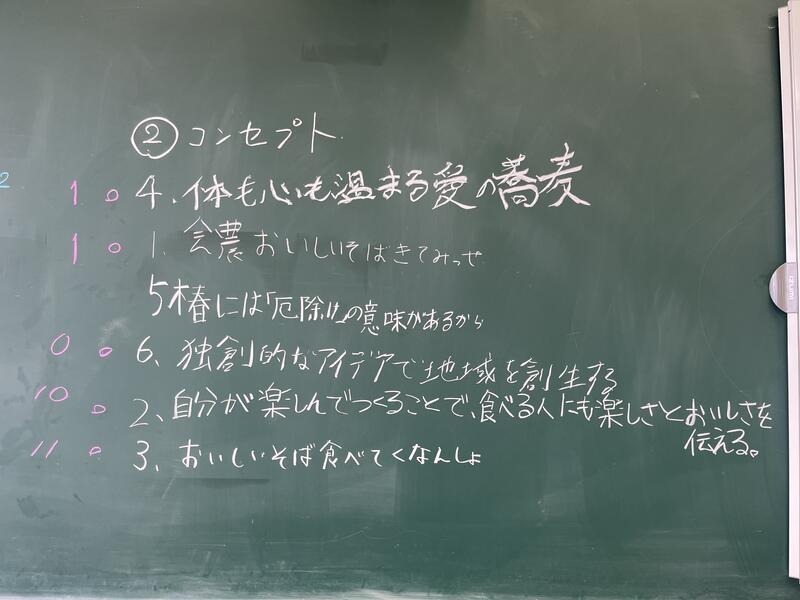 ② コンセプト
2
1 。 4、体も心も温まる愛の蕎麦
1 。 1、会農おいしいそばきてみっせ
5 椿には「厄除け」の意味があるから
0 。 6、独創的なアイデアで地域を創生する
10 。 2、自分が楽しんでつくることで、食べる人にも楽しさとおいしさを
伝える。
11 。 3、おいしいそば食べてくなんしょ
izumi